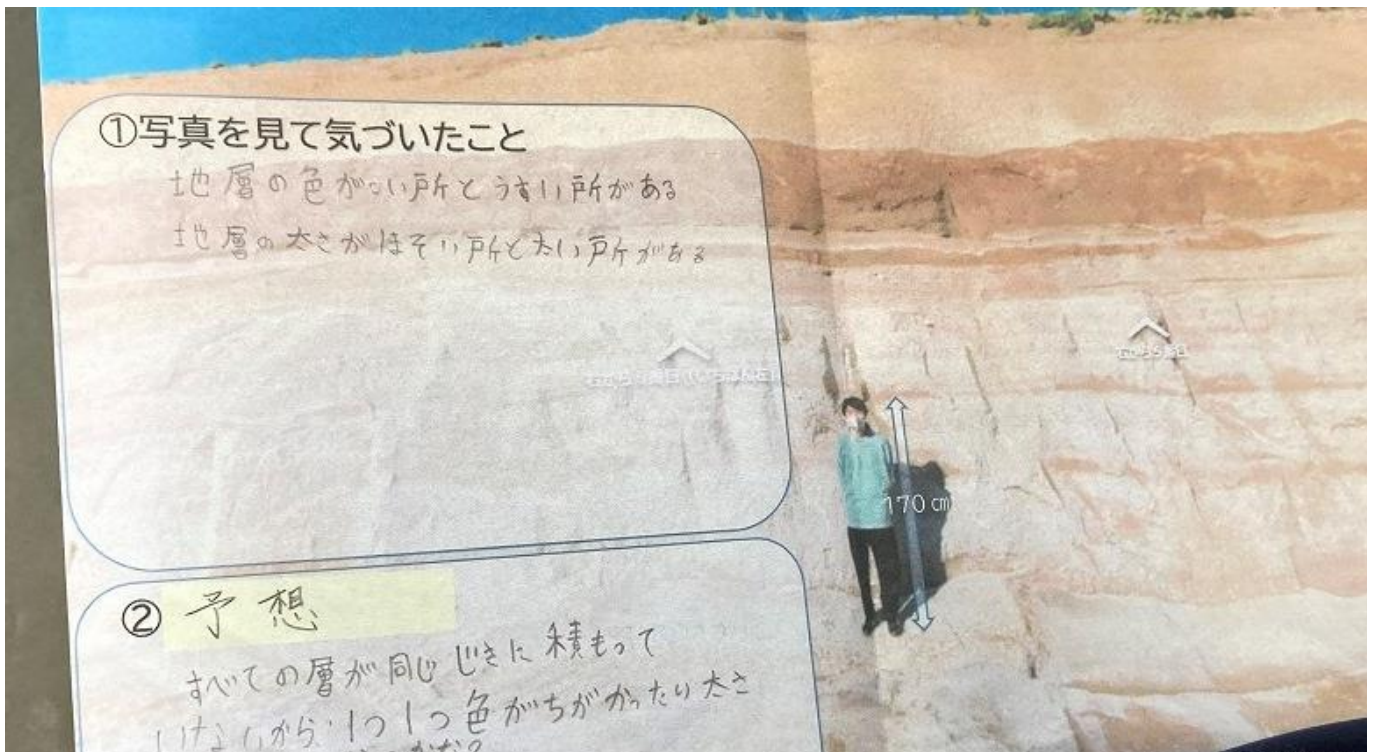 ①写真を見て気づいたこと
地層の色がこい所とうすい所がある
地層の太さがほそい所と太い所がある
170㎝
② 予想
すべての層が同じじきに積もって
いけないから 1つ1つ色がちがかったり太さ
かな?